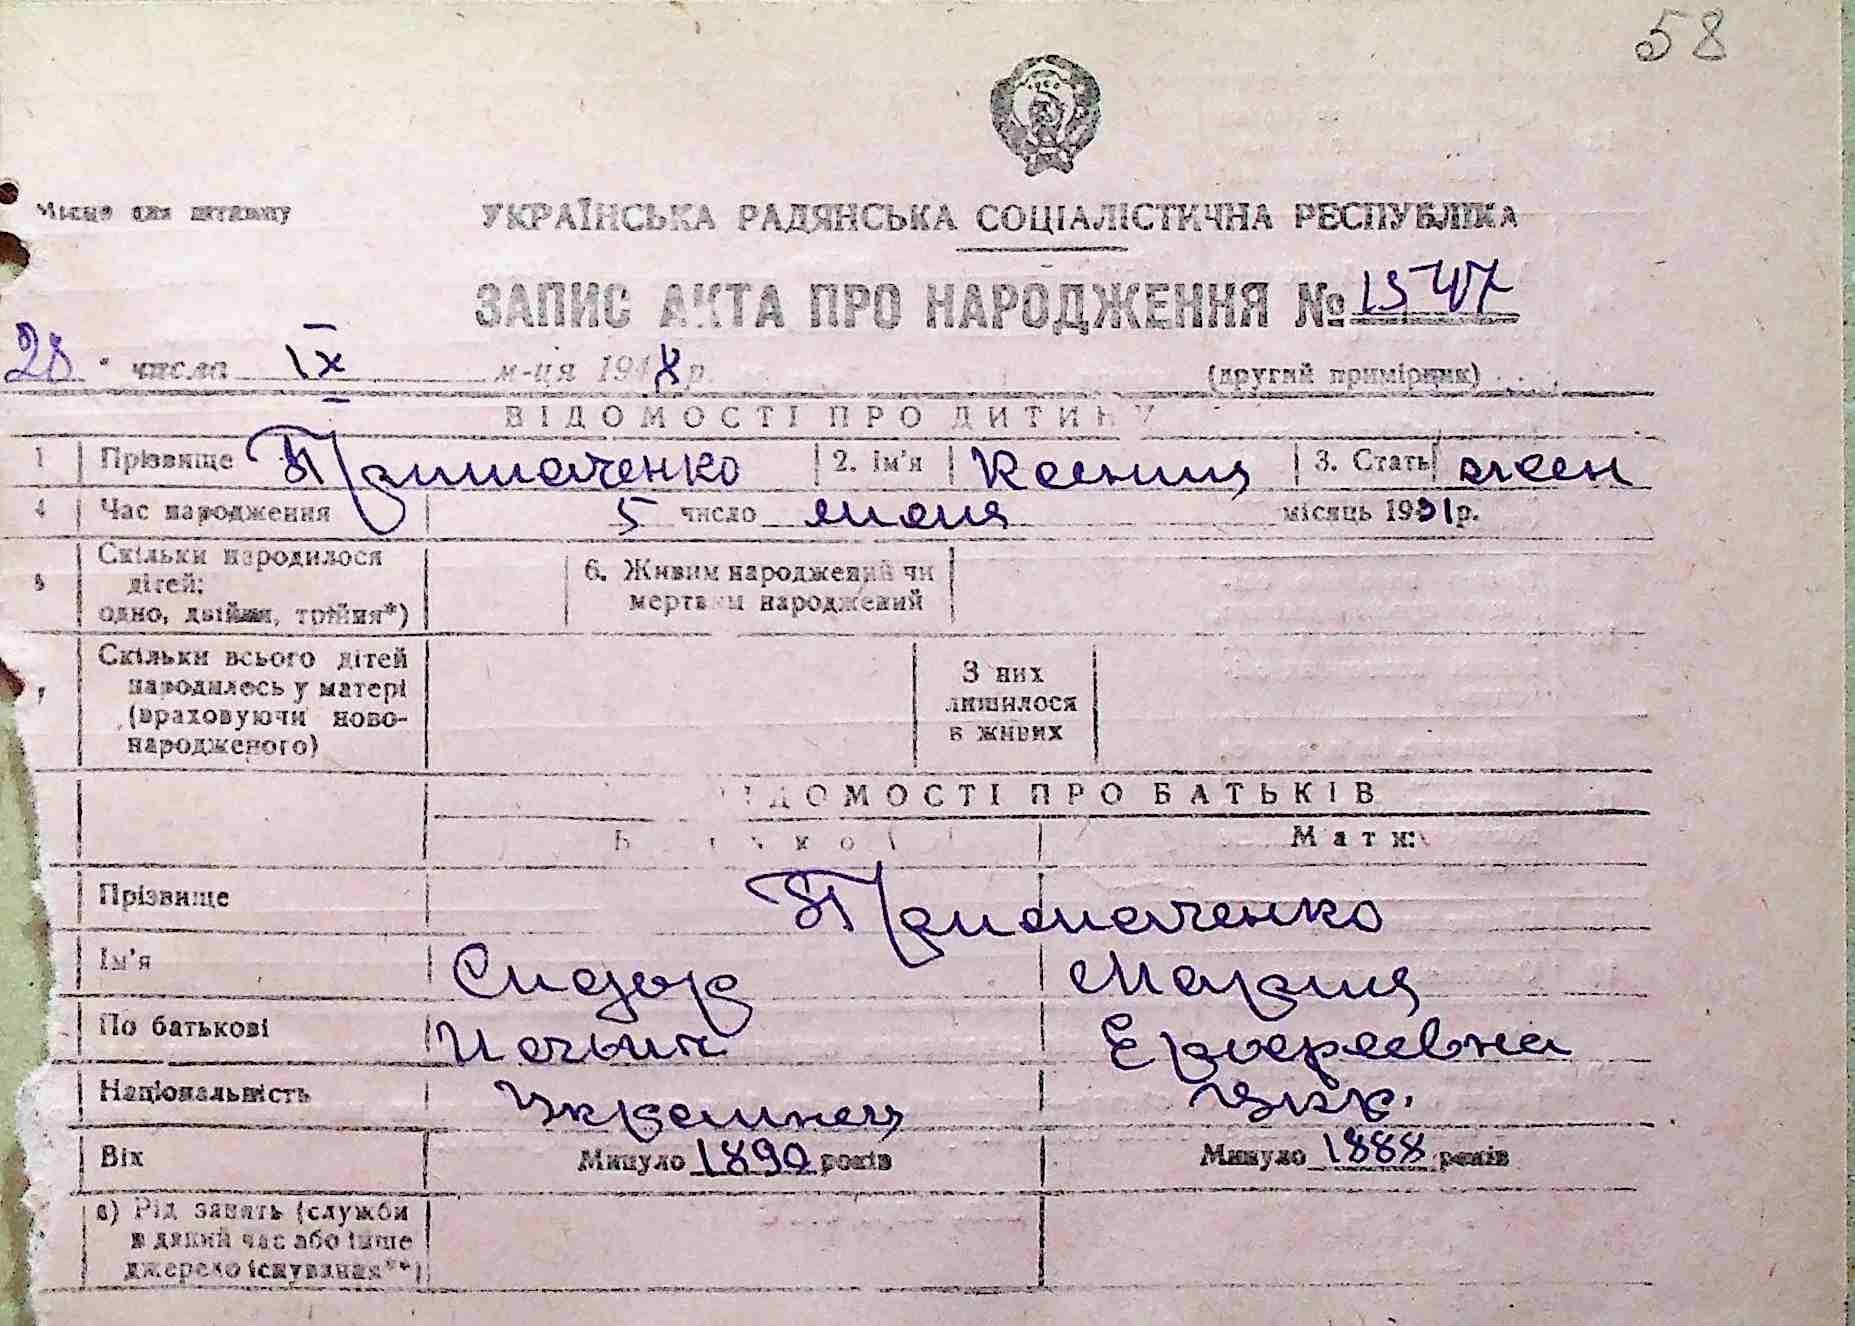 58
Місце для штампу
УКРАЇНСЬКА РАДЯНСЬКА СОЦІАЛІСТИЧНА РЕСПУБЛІКА
ЗАПИС АКТА ПРО НАРОДЖЕННЯ № 1547
28 " числа IX м-ця 1948 р. (другий примірник)
ВІДОМОСТІ ПРО ДИТИНУ
1 Прізвище Примаченко 2. Ім'я Ксения 3. Стать жен
4 Час народження 5 число июня місяць 1931 р.
5 Скільки народилося дітей: одно, двійня, трійня*) 6. Живим народжений чи мертвим народжений
7 Скільки всього дітей народилось у матері (враховуючи новонародженого) З них лишилося в живих
ВІДОМОСТІ ПРО БАТЬКІВ
Мати:
Прізвище Примаченко
Ім'я Сидор Мария
По батькові Ильич
Національність Украинец Укр.
Вік Минуло 1890 років Минуло 1888 років
а) Рід занять (служби в даний час або інше джерело існування**)